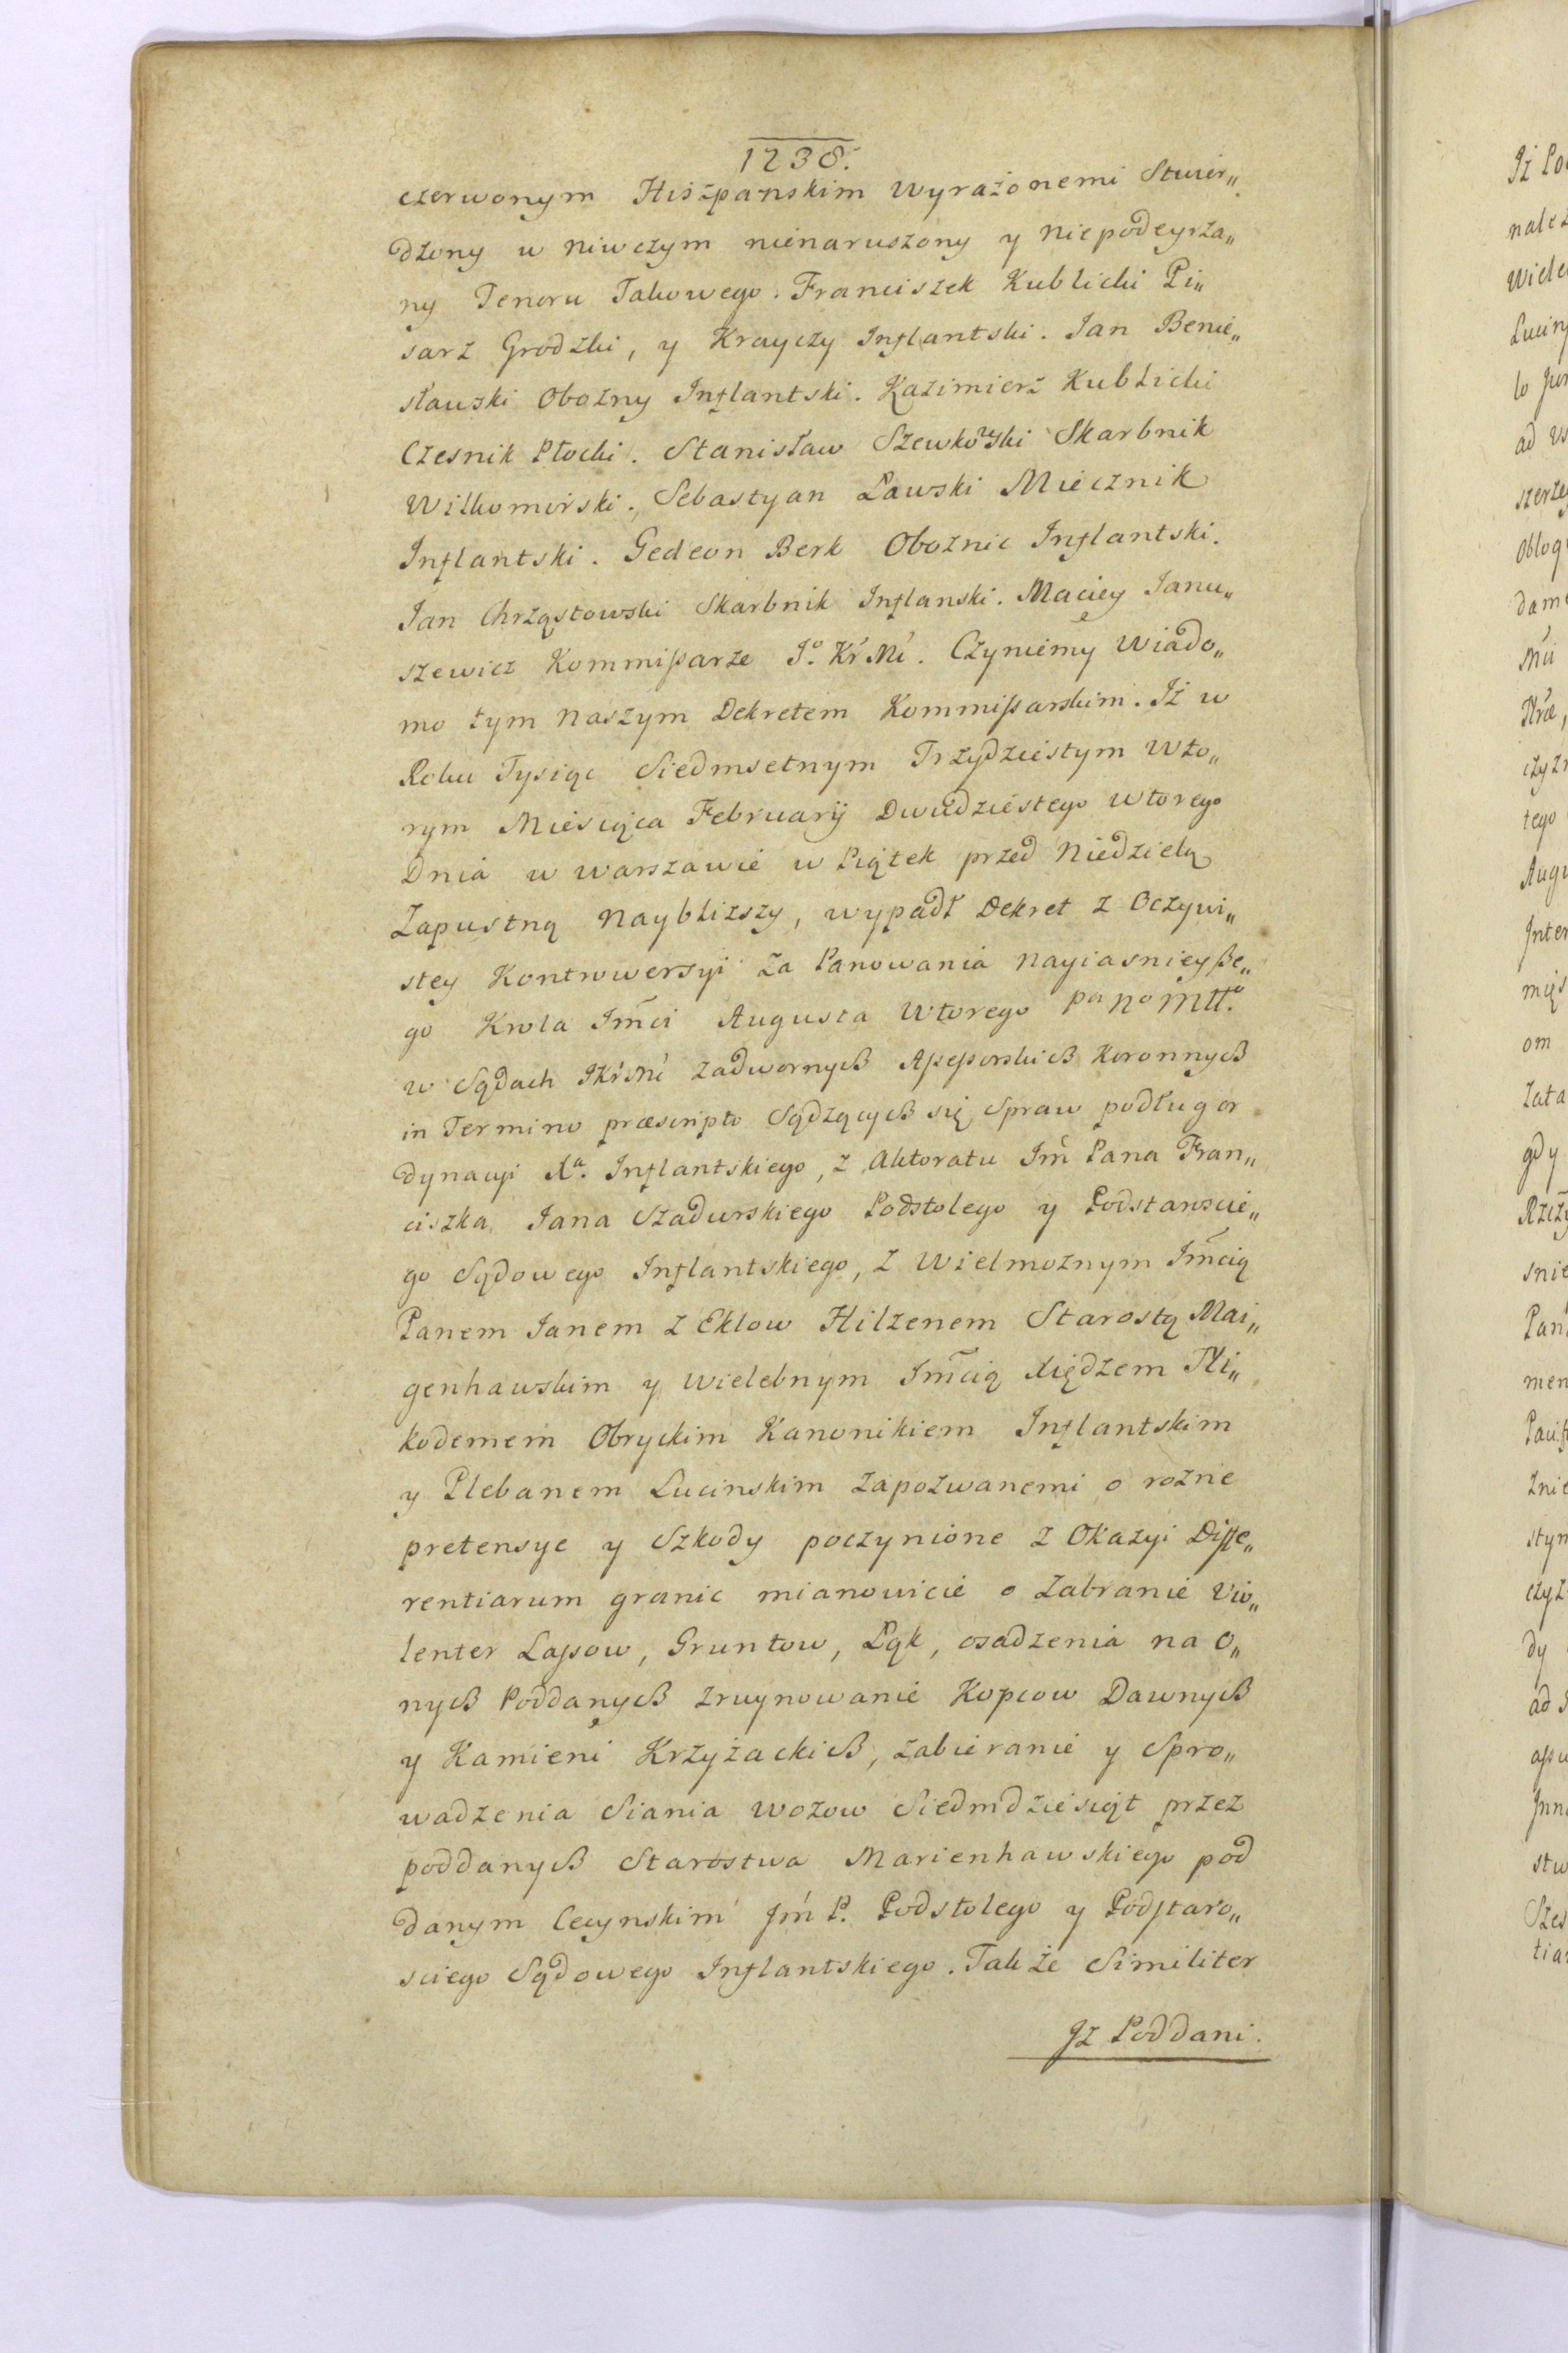 1238.
czerwonym Hiszpanskim wyrażonemi Stwier„
dzony w niwczym nienaruszony y niepodeyrza„
ny Tenoru Takowego. Franciszek Kublicki Pi„
sarz Grodzki, y Krayczy Inflantski. Jan Benie„
sławski Obozny Inflantski. Kazimierz Kublicki
Czesnik Płocki. Stanisław Szewkowski Skarbnik
Wiłkomirski. Sebastyan Ławski Miecznik
Inflantski. Gedeon Berk Oboznic Inflantski.
Jan Chrząstowski Skarbnik Inflanski. Maciey Janu„
szewicz Kommissarze Jº. Kr Mi. Czyniemy Wiado„
mo tym naszym Dekretem Kommissarskim. Iż w
Roku Tysiąc Siedmsetnym Trzydziestym Wto„
rym Miesiąca Februarij Dwudziestego wtorego
Dnia w Warszawie w Piątek przed Niedzielą
Zapustną naybliższy, wypadł Dekret z Oczywi„
stey Kontrowersyi za Panowania nayiasnieysze„
go Krola Jmci Augusta Wtorego pa no mttº.
w Sądach JKr Mi zadwornych Assessorskich Koronnych
in Termino præscripto Sądzących się Spraw podług or
dynacyi Xª. Inflantskiego, z Aktoratu Jm Pana Fran„
ciszka Jana Szadurskiego Podstolego y Podstaroście„
go Sądowego Inflantskiego, z Wielmożnym Jmcią
Panem Janem z Eklow Hilzenem Starostą Mai„
genhawskim y wielebnym Jmcią Xiędzem Ni„
kodemem Obryckim Kanonikiem Inflantskim
y Plebanem Lucinskim zapozwanemi o rozne
pretensye y Szkody poczynione z Okazyi Diffe„
rentiarum granic mianowicie o Zabranie vio„
lenter Lassow, Gruntow, Łąk, osadzenia na o„
nych Poddanych zruynowanie Kopcow Dawnych
y Kamieni Krzyżackich, zabieranie y Spro„
wadzenia Siania wozow Siedmdziesiąt przez
poddanych Starostwa Marienhawskiego pod
danym Cecynskim Jm P. Podstolego y Podstaro„
sciego Sądowego Inflantskiego. Także Similiter
Jz Poddani.